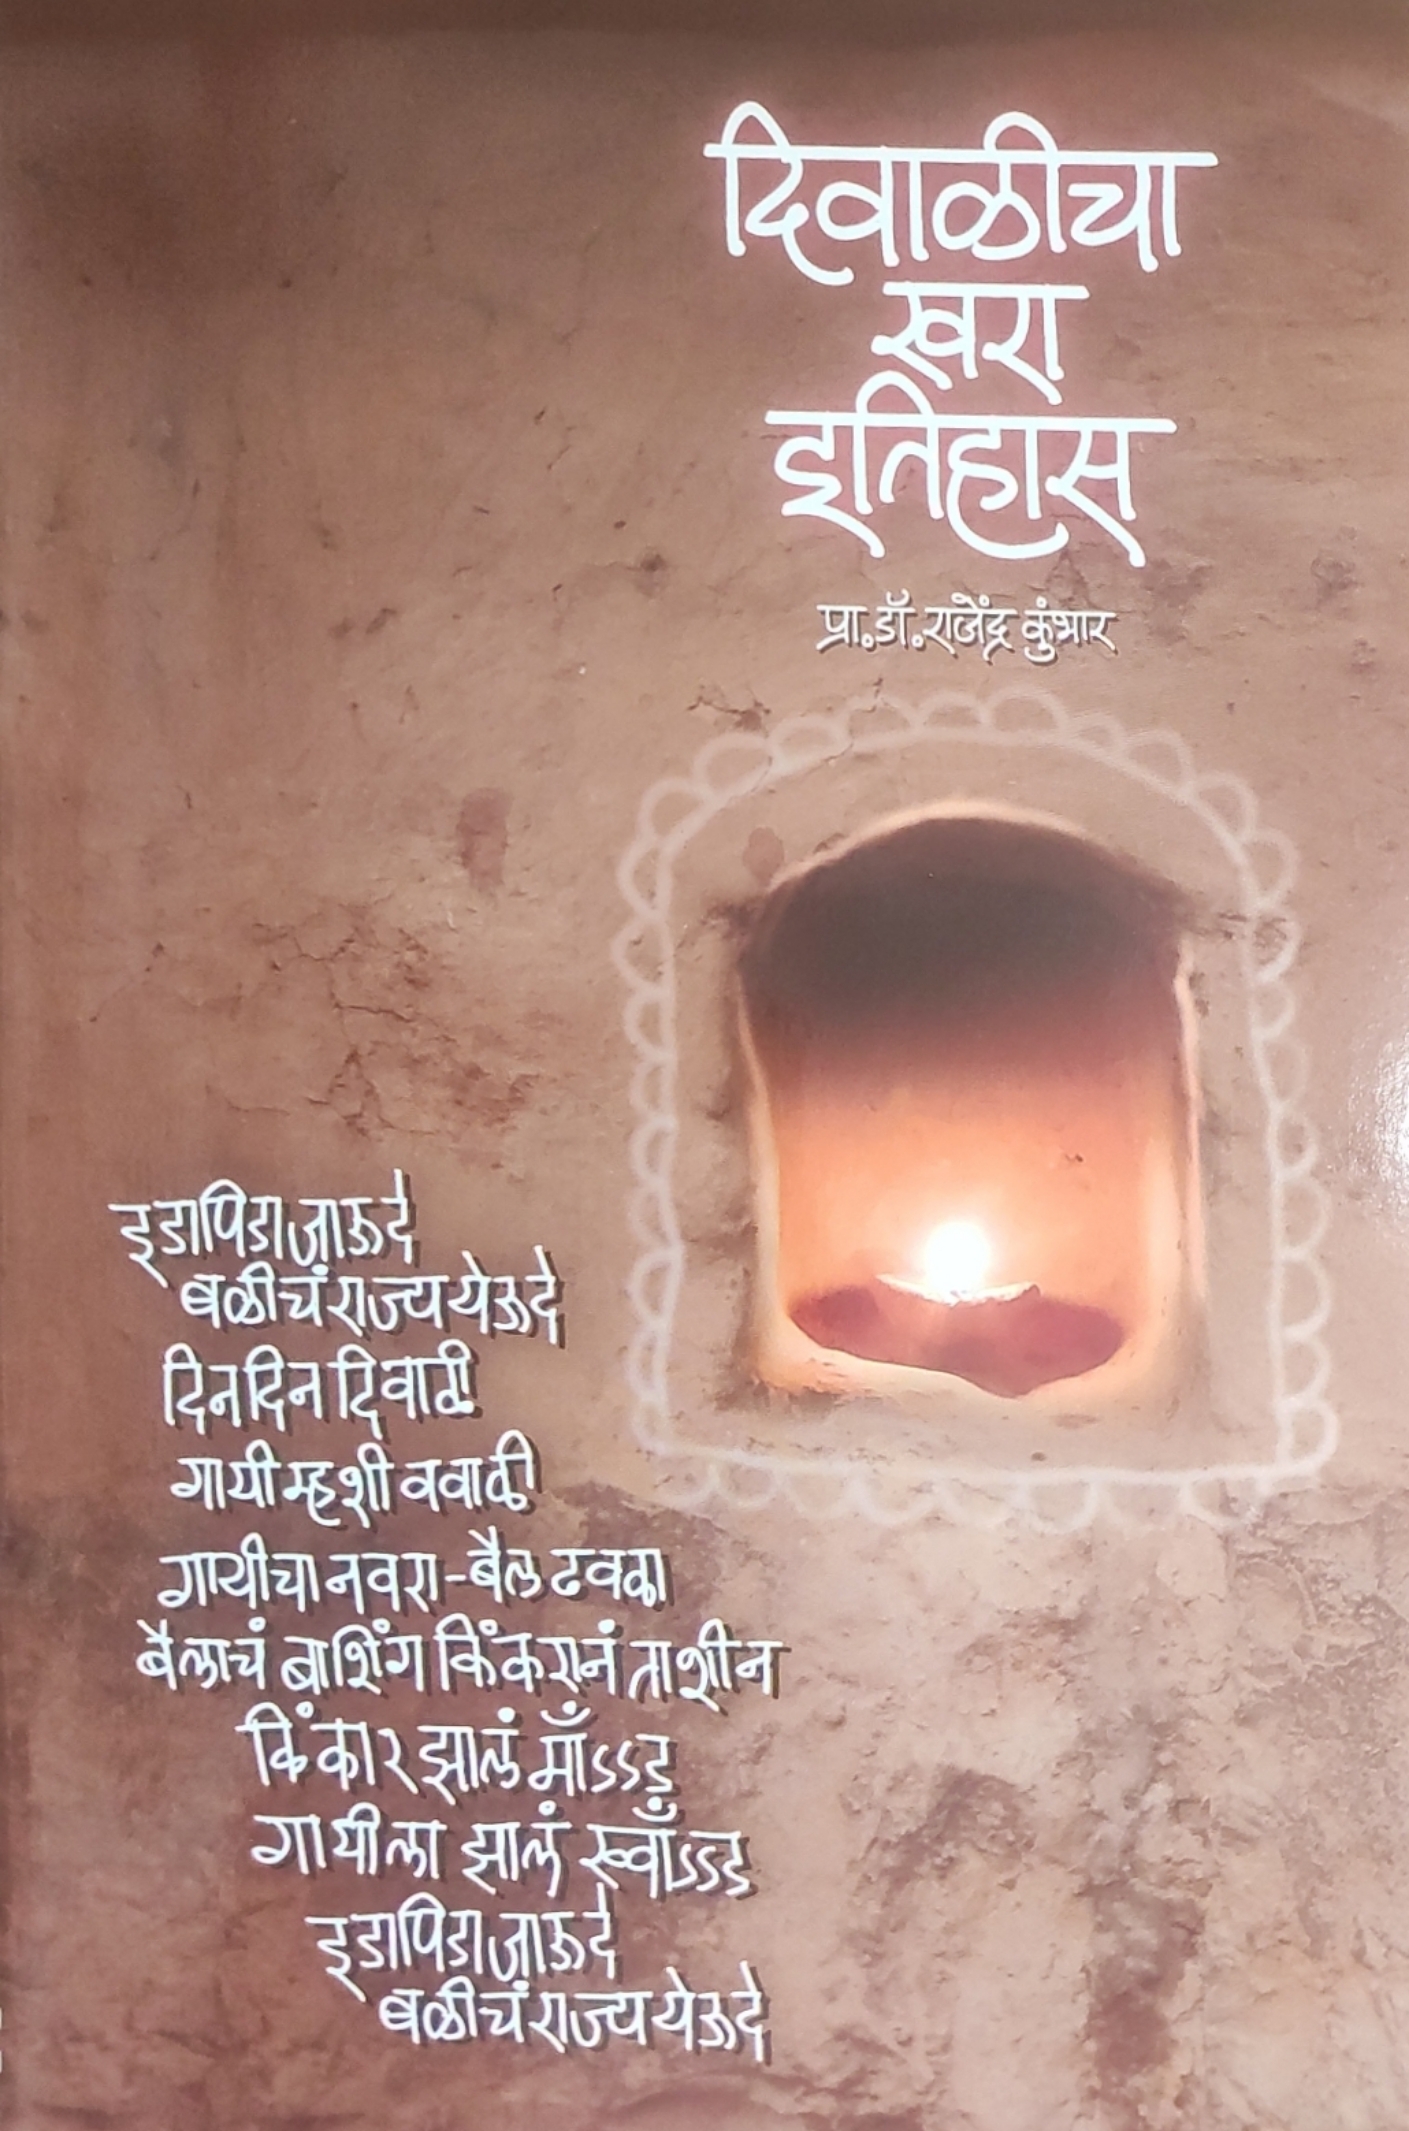 दिवाळीचा
खरा
इतिहास
प्रा.डॉ.राजेंद्र कुंभार
इडापिडा जाऊ दे
बळीचं राज्य येऊ दे
दिन दिन दिवाळी
गायी म्हशी ववाळी
गायीचा नवरा-बैल ढवळा
बैलाचं बाशिंग किंकरानं ताशीन
किंकार झालं माँऽऽड
गायीला झालं ख्वाँऽऽड
इडापिडा जाऊ दे
बळीचं राज्य येऊ दे